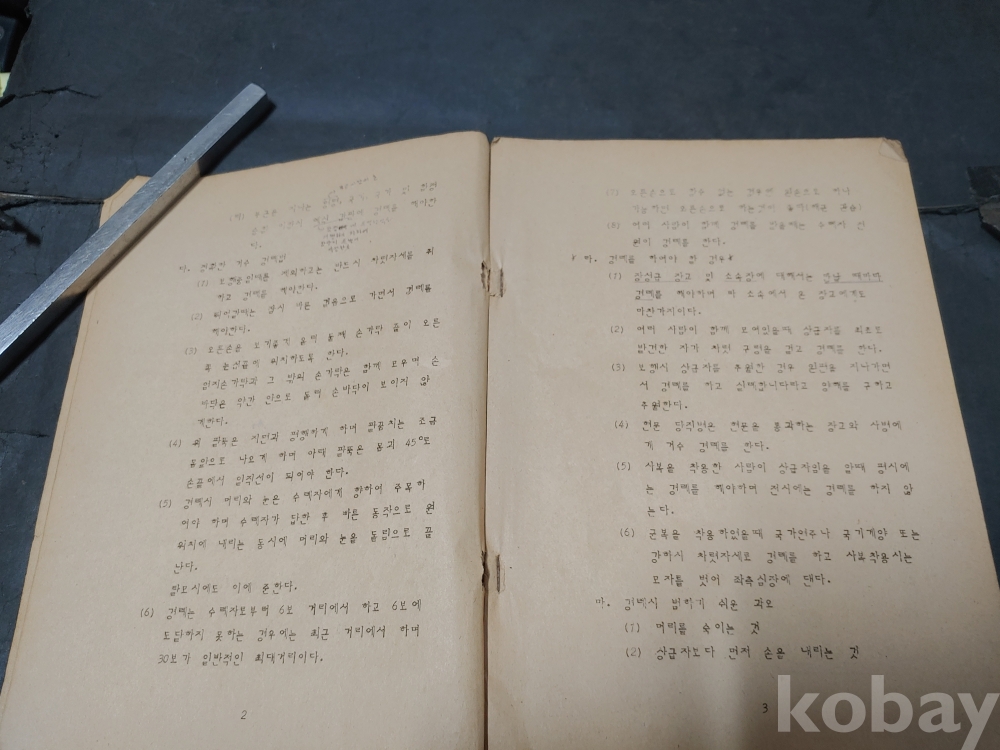 다. 정확한 거수 경례법
(1) 도행중일때를 제외하고는 반드시 차렷자세를 취
하고 경례를 해야한다.
(2) 경례는 바른 걸음으로 가면서 경례를
해야한다.
(3) 오른손을 모자줄기 옆의 둘째 손가락 끝이 오른
쪽 눈썹끝에 위치하도록 한다.
엄지손가락과 그 밖의 손가락은 함께 모우며 손
바닥은 약간 안으로 돌려 손바닥이 보이지 않
게한다.
(4) 윗 팔뚝은 지면과 평행하게 하며 팔꿈치는 조금
앞으로 나오게 하며 아래 팔뚝은 몸과 45°로
손끝에서 일직선이 되어야 한다.
(5) 경례시 머리와 눈은 수례자에게 향하여 주목하
여야 하며 수례자가 답한 후 빠른 동작으로 원
위치에 내리는 동시에 머리와 눈을 돌림으로 끝
난다.
탈모시에도 이에 준한다.
(6) 경례는 수례자로부터 6보 거리에서 하고 6보에
도달하지 못하는 경우에는 최근 거리에서 하며
30보가 일반적인 최대거리이다.
2
(7) 오른손으로 할수 없는 경우에 왼손으로 하나
가능하면 오른손으로 하는것이
(8) 여러 사람이 함께 경례를 받을때는 수례자 전
원이 경례를 한다.
라. 경례를 해야 할 경우
(1) 장성급 장교 및 소속장에 대해서는 반드시 해야하
경례를 해야하며 타 소속에서 온 장교에게도
마찬가지이다.
(2) 여러 사람이 함께 모여있을때 상급자를 최초로
발견한 자가 차렷 구령을 걸고 경례를 한다.
(3) 도행시 상급자를 추월한 경우 왼편을 지나가면
서 경례를 하고 실례합니다하고 양해를 구하고
추월한다.
(4) 현문 당직병은 현문을 통과하는 장교와 사병에
게 거수 경례를 한다.
(5) 사복을 착용한 사람이 상급자임을 알때 평시에
는 경례를 해야하며 전시에는 경례를 하지 않
는다.
(6) 군복을 착용하였을때 국가연주나 국기게양 또는
강하시 차렷자세로 경례를 하고 사복착용시는
모자를 벗어 좌측심장에 댄다.
마. 경례시 범하기 쉬운 과오
(1) 머리를 숙이는 것
(2) 상급자보다 먼저 손을 내리는 것
3
kobay